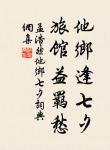 他鄉逢七夕
旅館益羈愁
孟浩然他鄉七夕詞典
網集